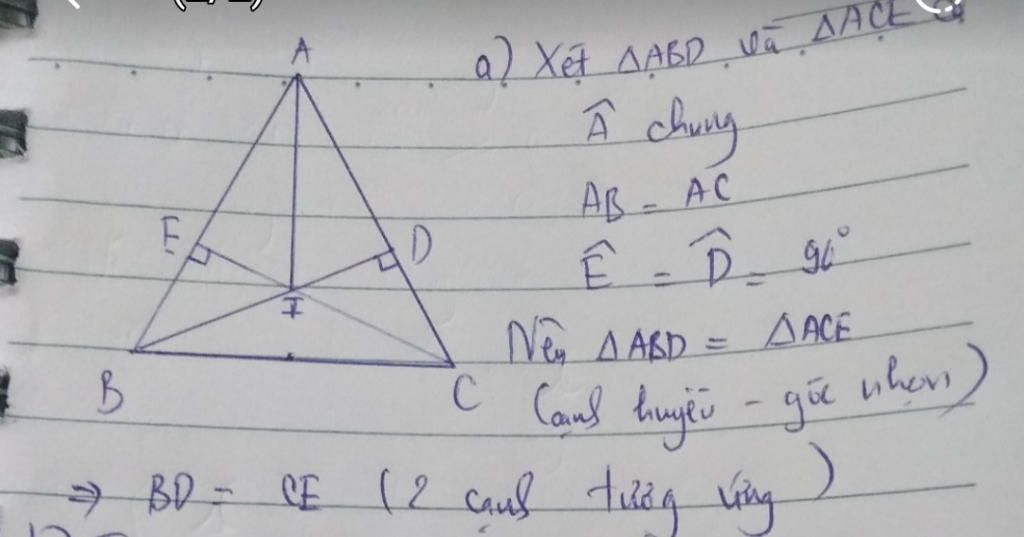 A
a) Xét ΔABD và ΔACE có
Â chung
AB = AC
E
D
Ê = D̂ = 90°
I
Nên ΔABD = ΔACE
B
C
(cạnh huyền - góc nhọn)
⇒ BD = CE (2 cạnh tương ứng)